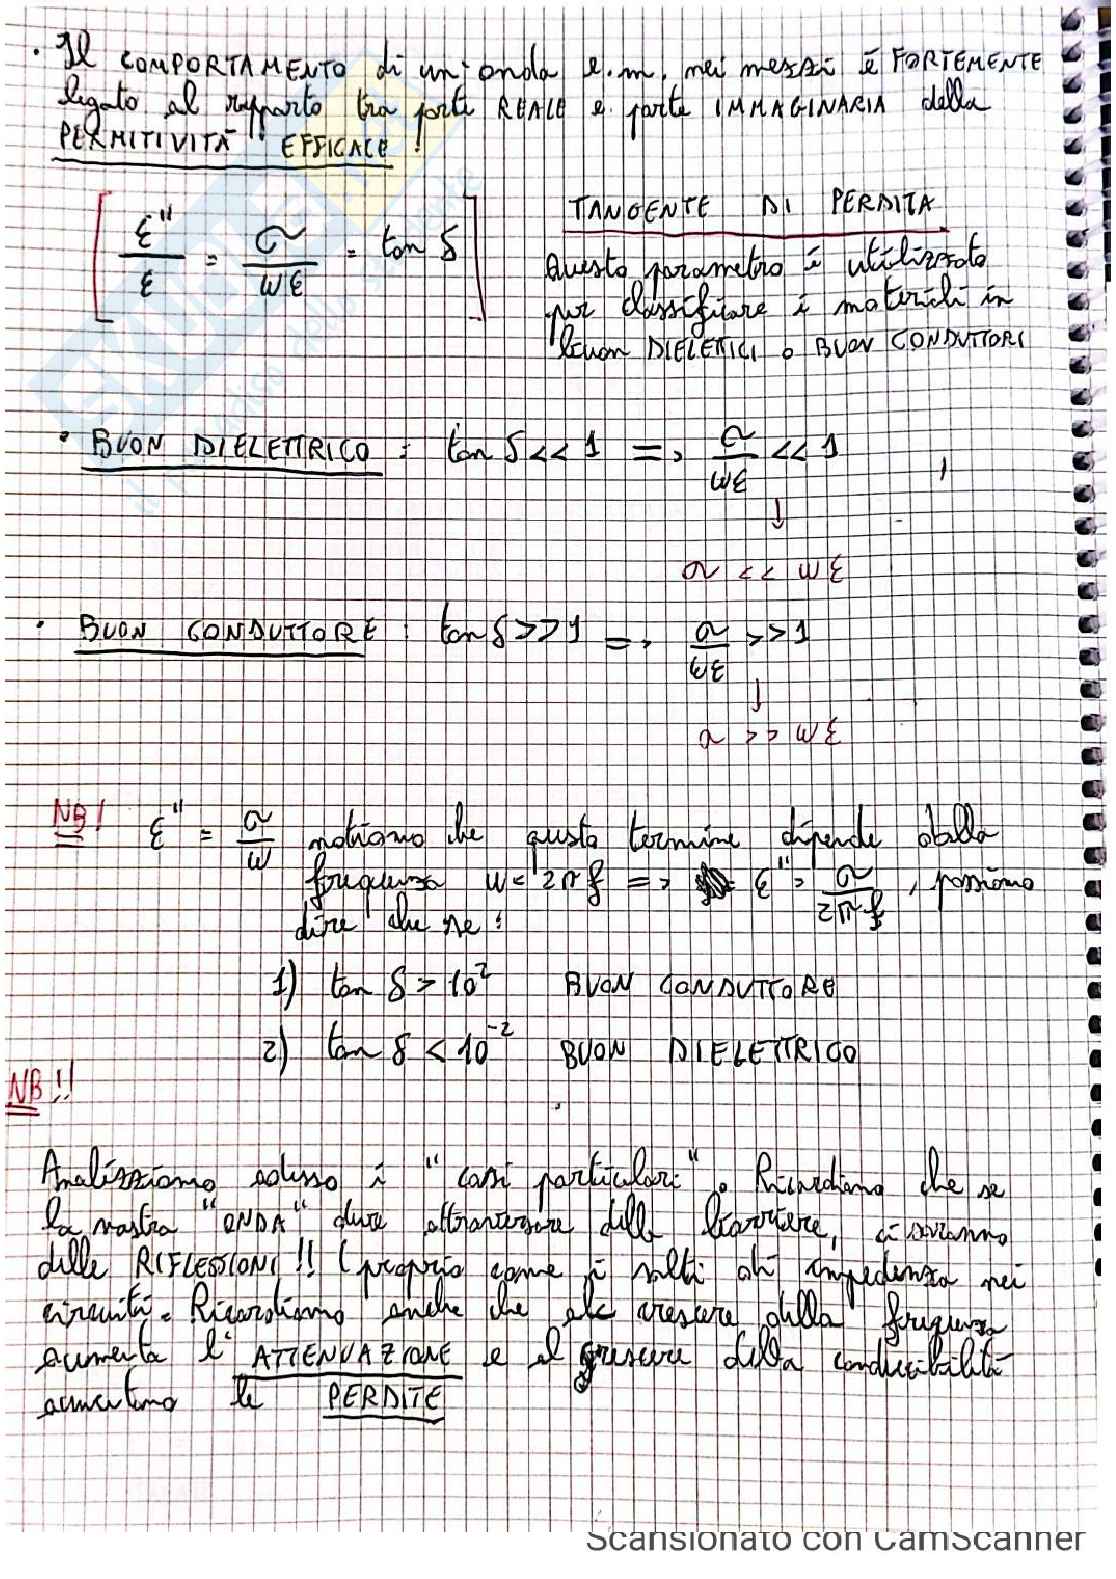 · Il COMPORTAMENTO di un' onda e.m. nei mezzi è FORTEMENTE
legato al rapporto tra parte REALE e parte IMMAGINARIA della
PERMITIVITÀ EFFICACE!
[ε"/ε = σ/ωε = tan δ]
TANGENTE DI PERDITA
Questo parametro è utilizzato
per classificare i materiali in
buon DIELETTICI o BUON CONDUTTORI
· BUON DIELETTRICO : tan δ << 1 => σ/ωε << 1
↓
σ << ωε
· BUON CONDUTTORE : tan δ >> 1 => σ/ωε >> 1
↓
σ >> ωε
NB! ε" = σ/ω notiamo che questo termine dipende dalla
frequenza ω = 2πf => ε" = σ/2πf, possiamo
dire che se :
1) tan δ > 10² BUON CONDUTTORE
2) tan δ < 10⁻² BUON DIELETTRICO
NB!!
Analizziamo adesso i "casi particolari". Ricordiamo che se
la nostra "ONDA" deve attraversare delle barriere, ci saranno
delle RIFLESSIONI!! (proprio come i salti di impedenza nei
circuiti. Ricordiamo anche che al crescere della frequenza
aumenta l'ATTENUAZIONE e al crescere della conducibilità
aumentano le PERDITE
Scansionato con CamScanner